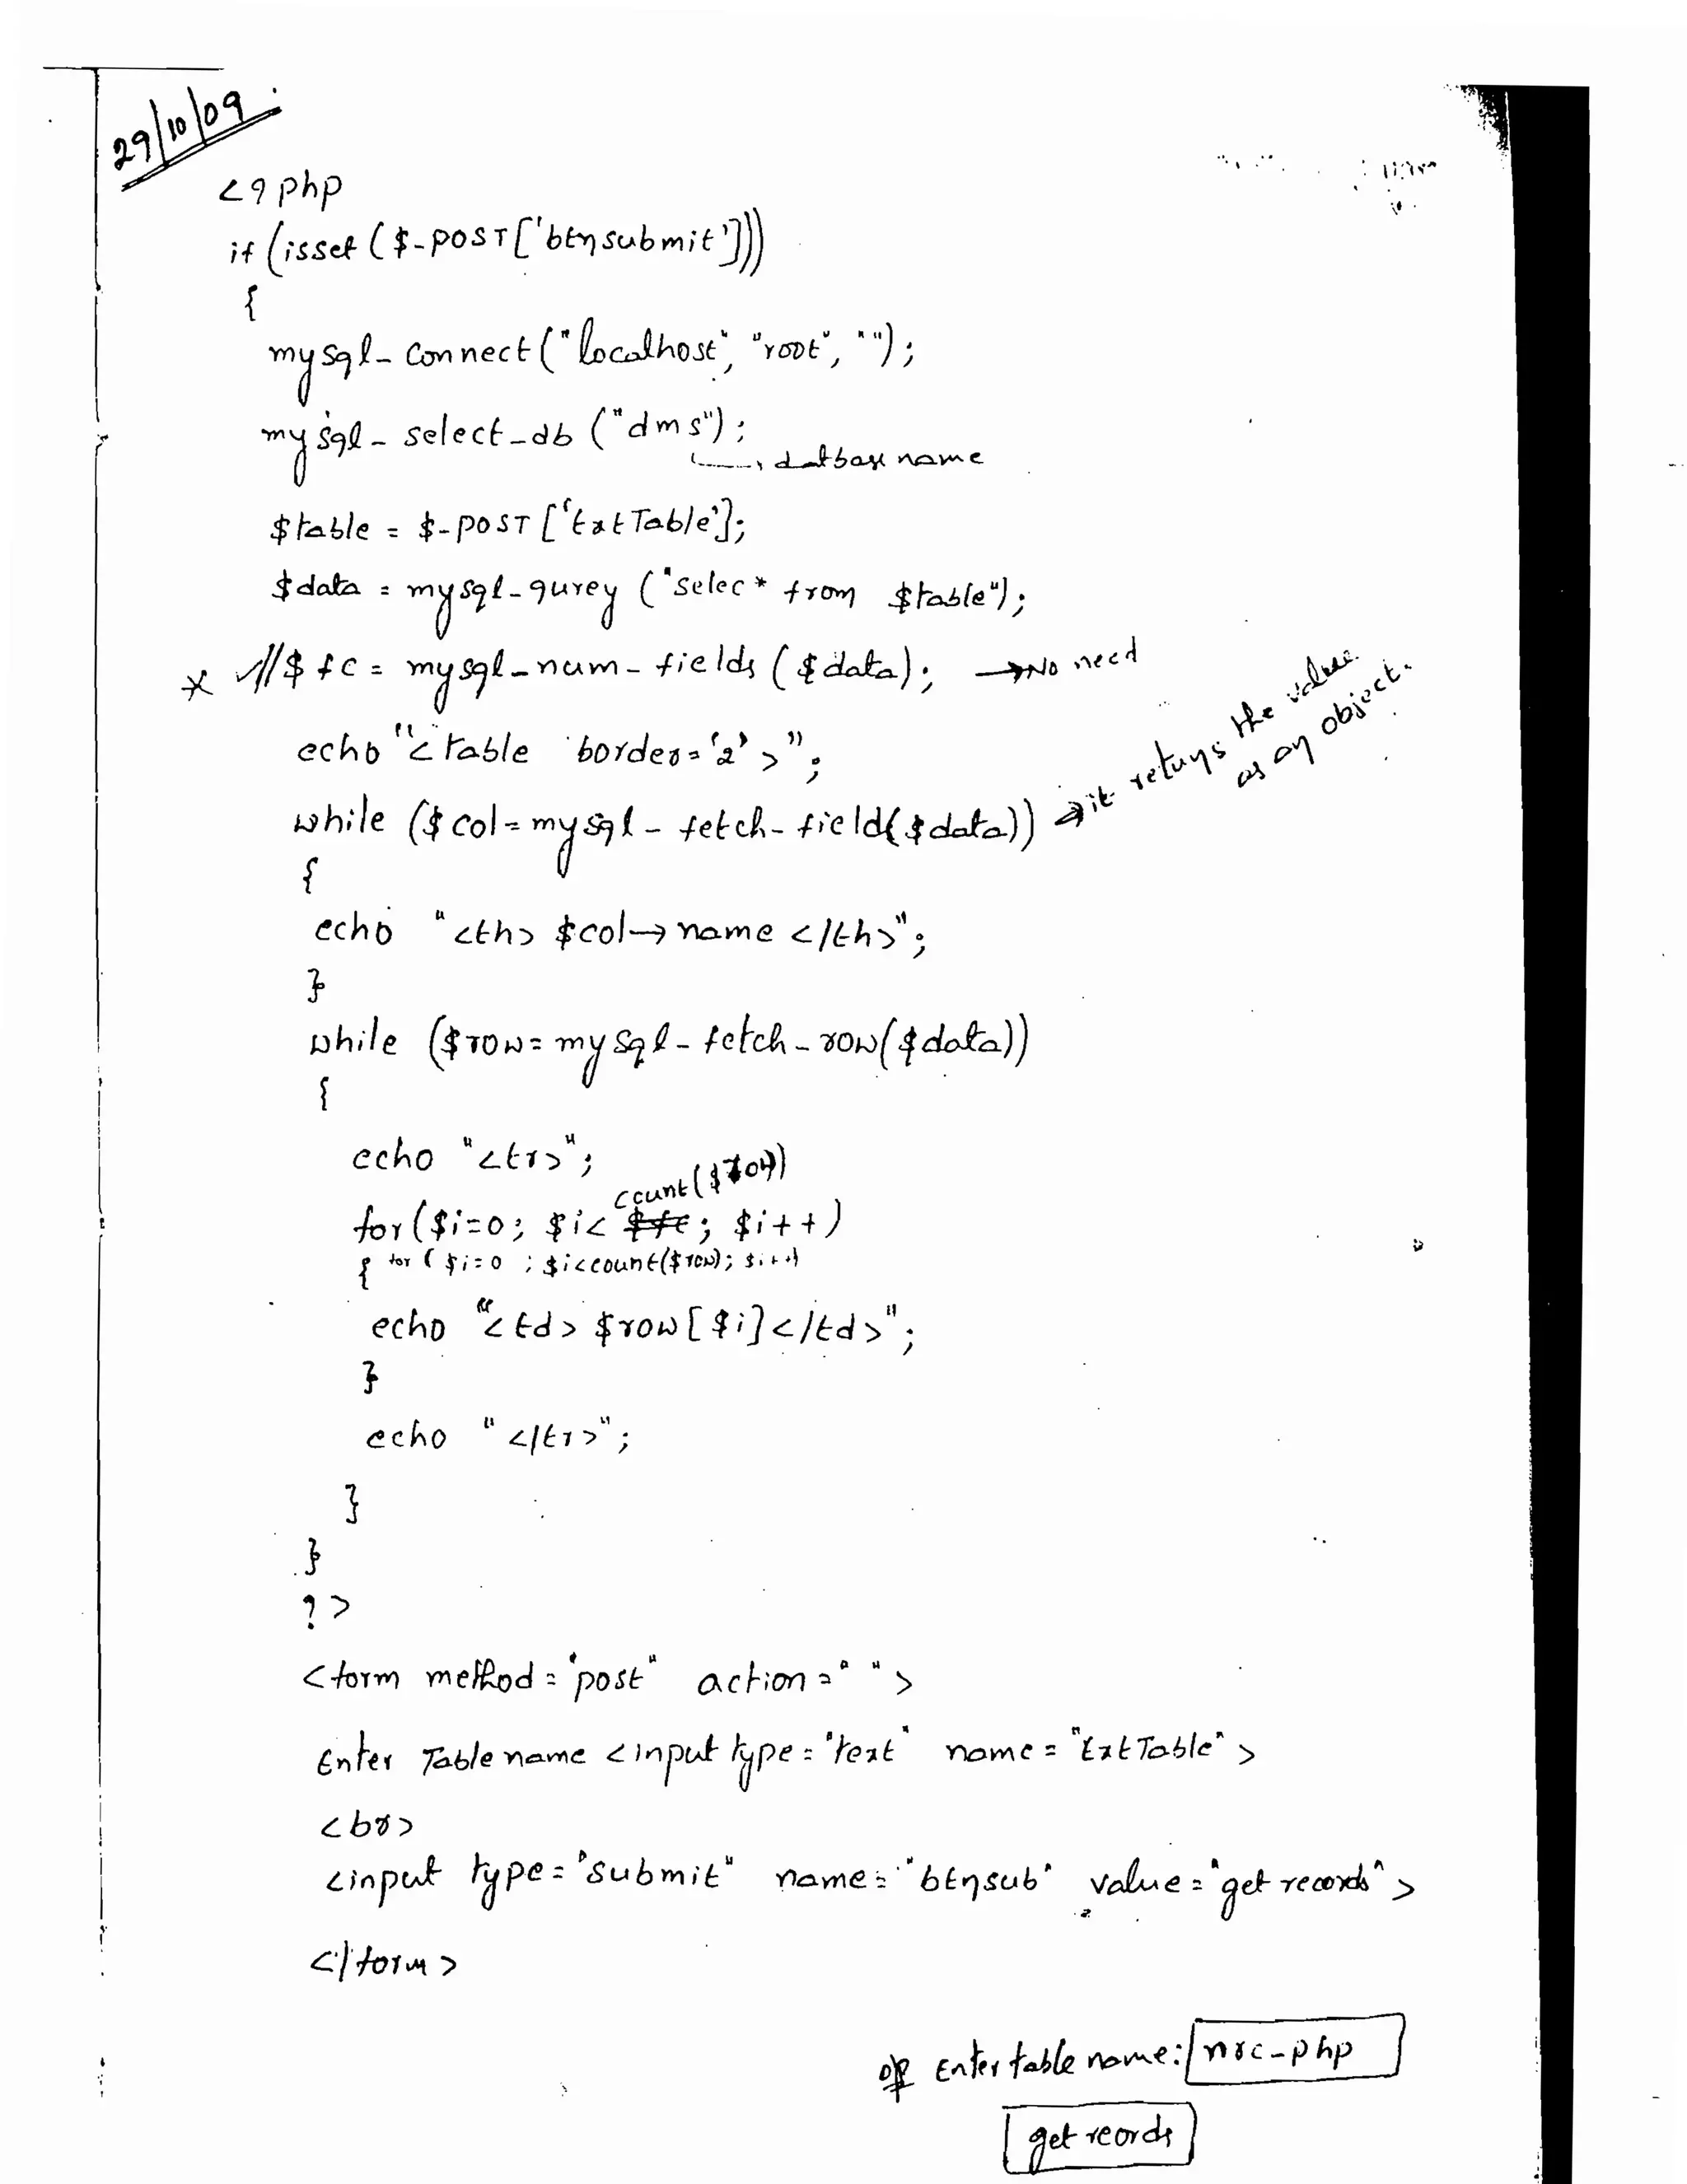 29/10/09
<?php
if (isset ($_POST['btnsubmit']))
{
mysql_connect ("localhost", "root", "");
mysql_select_db ("dms");
datbase name
$table = $_POST ['txtTable'];
$data = mysql_qurey ("selec * from $table");
* //$fc = mysql_num_fields ($data); → No need
echo "<table border='2'>";
while ($col = mysql_fetch_field($data)) → it returns the value as an object.
{
echo "<th> $col→name </th>";
}
while ($row = mysql_fetch_row($data))
{
echo "<tr>";
count($row)
for ($i=0; $i< $fc; $i++)
{ for ($i=0 ; $i<count($row); $i++)
echo "<td> $row[$i]</td>";
}
echo "</tr>";
}
}
?>
<form method="post" action=" ">
Enter Table name <input type="text" name="txtTable">
<br>
<input type="submit" name="btnsub" value="get records">
</form>
o/p Enter table name: nrc-php
get reords